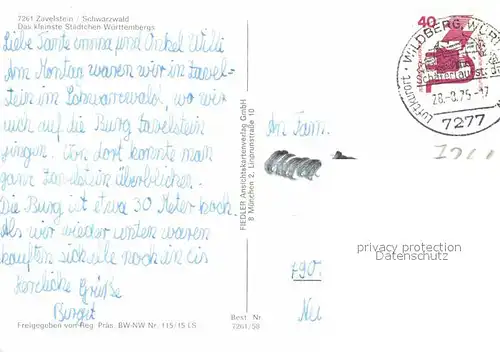 7261 Zavelstein / Schwarzwald
Das kleinste Städtchen Württembergs
Liebe Tante Emma und Onkel Willi
Am Montag waren wir in Zavel-
stein im Schwarzwald, wo wir
auch auf die Burg Zavelstein
gingen. Von dort konnte man
ganz Zavelstein überblicken.
Die Burg ist etwa 30 Meter hoch.
Als wir wieder unten waren
kauften sich alle noch ein Eis
Herzliche Grüße
Birgit
Freigegeben von Reg. Präs. BW-NW Nr. 115/15 LS
FIEDLER Ansichtskartenverlag GmbH
8 München 2, Linprunstraße 10
Best. Nr.
7261/58
40
WILDBERG, WÜRTT
Schäferlaufst
Luftkurort
28.-8.75-17
7277
An Fam.
790.
Neu
privacy protection
Datenschutz